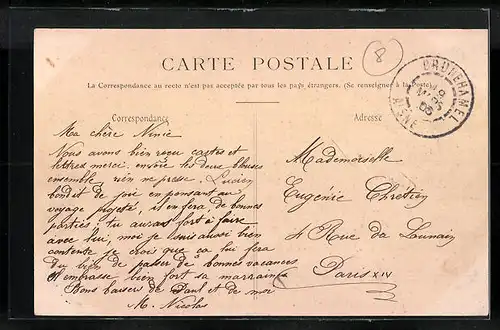 CARTE POSTALE
8
La Correspondance au recto n'est pas acceptée par tous les pays étrangers. (Se renseigner à la Poste)
BRUNEHAMEL
AISNE
Correspondance
Adresse
Ma chère Ninie
Nous avons bien reçu cartes et
lettres merci. envoie les deux blouses
ensemble rien ne presse. Lucien
bondit de joie en pensant au
voyage projeté, il en fera de bonnes
parties; tu auras fort à faire
avec lui, moi je suis aussi bien
contente je crois que ça lui fera
du bien de passer de bonnes vacances
Il embrasse bien fort sa marraine
Bons baisers de Paul et de moi
M. Nicolas
Mademoiselle
Eugénie Chrétien
4 Rue de Launain
Paris XIV